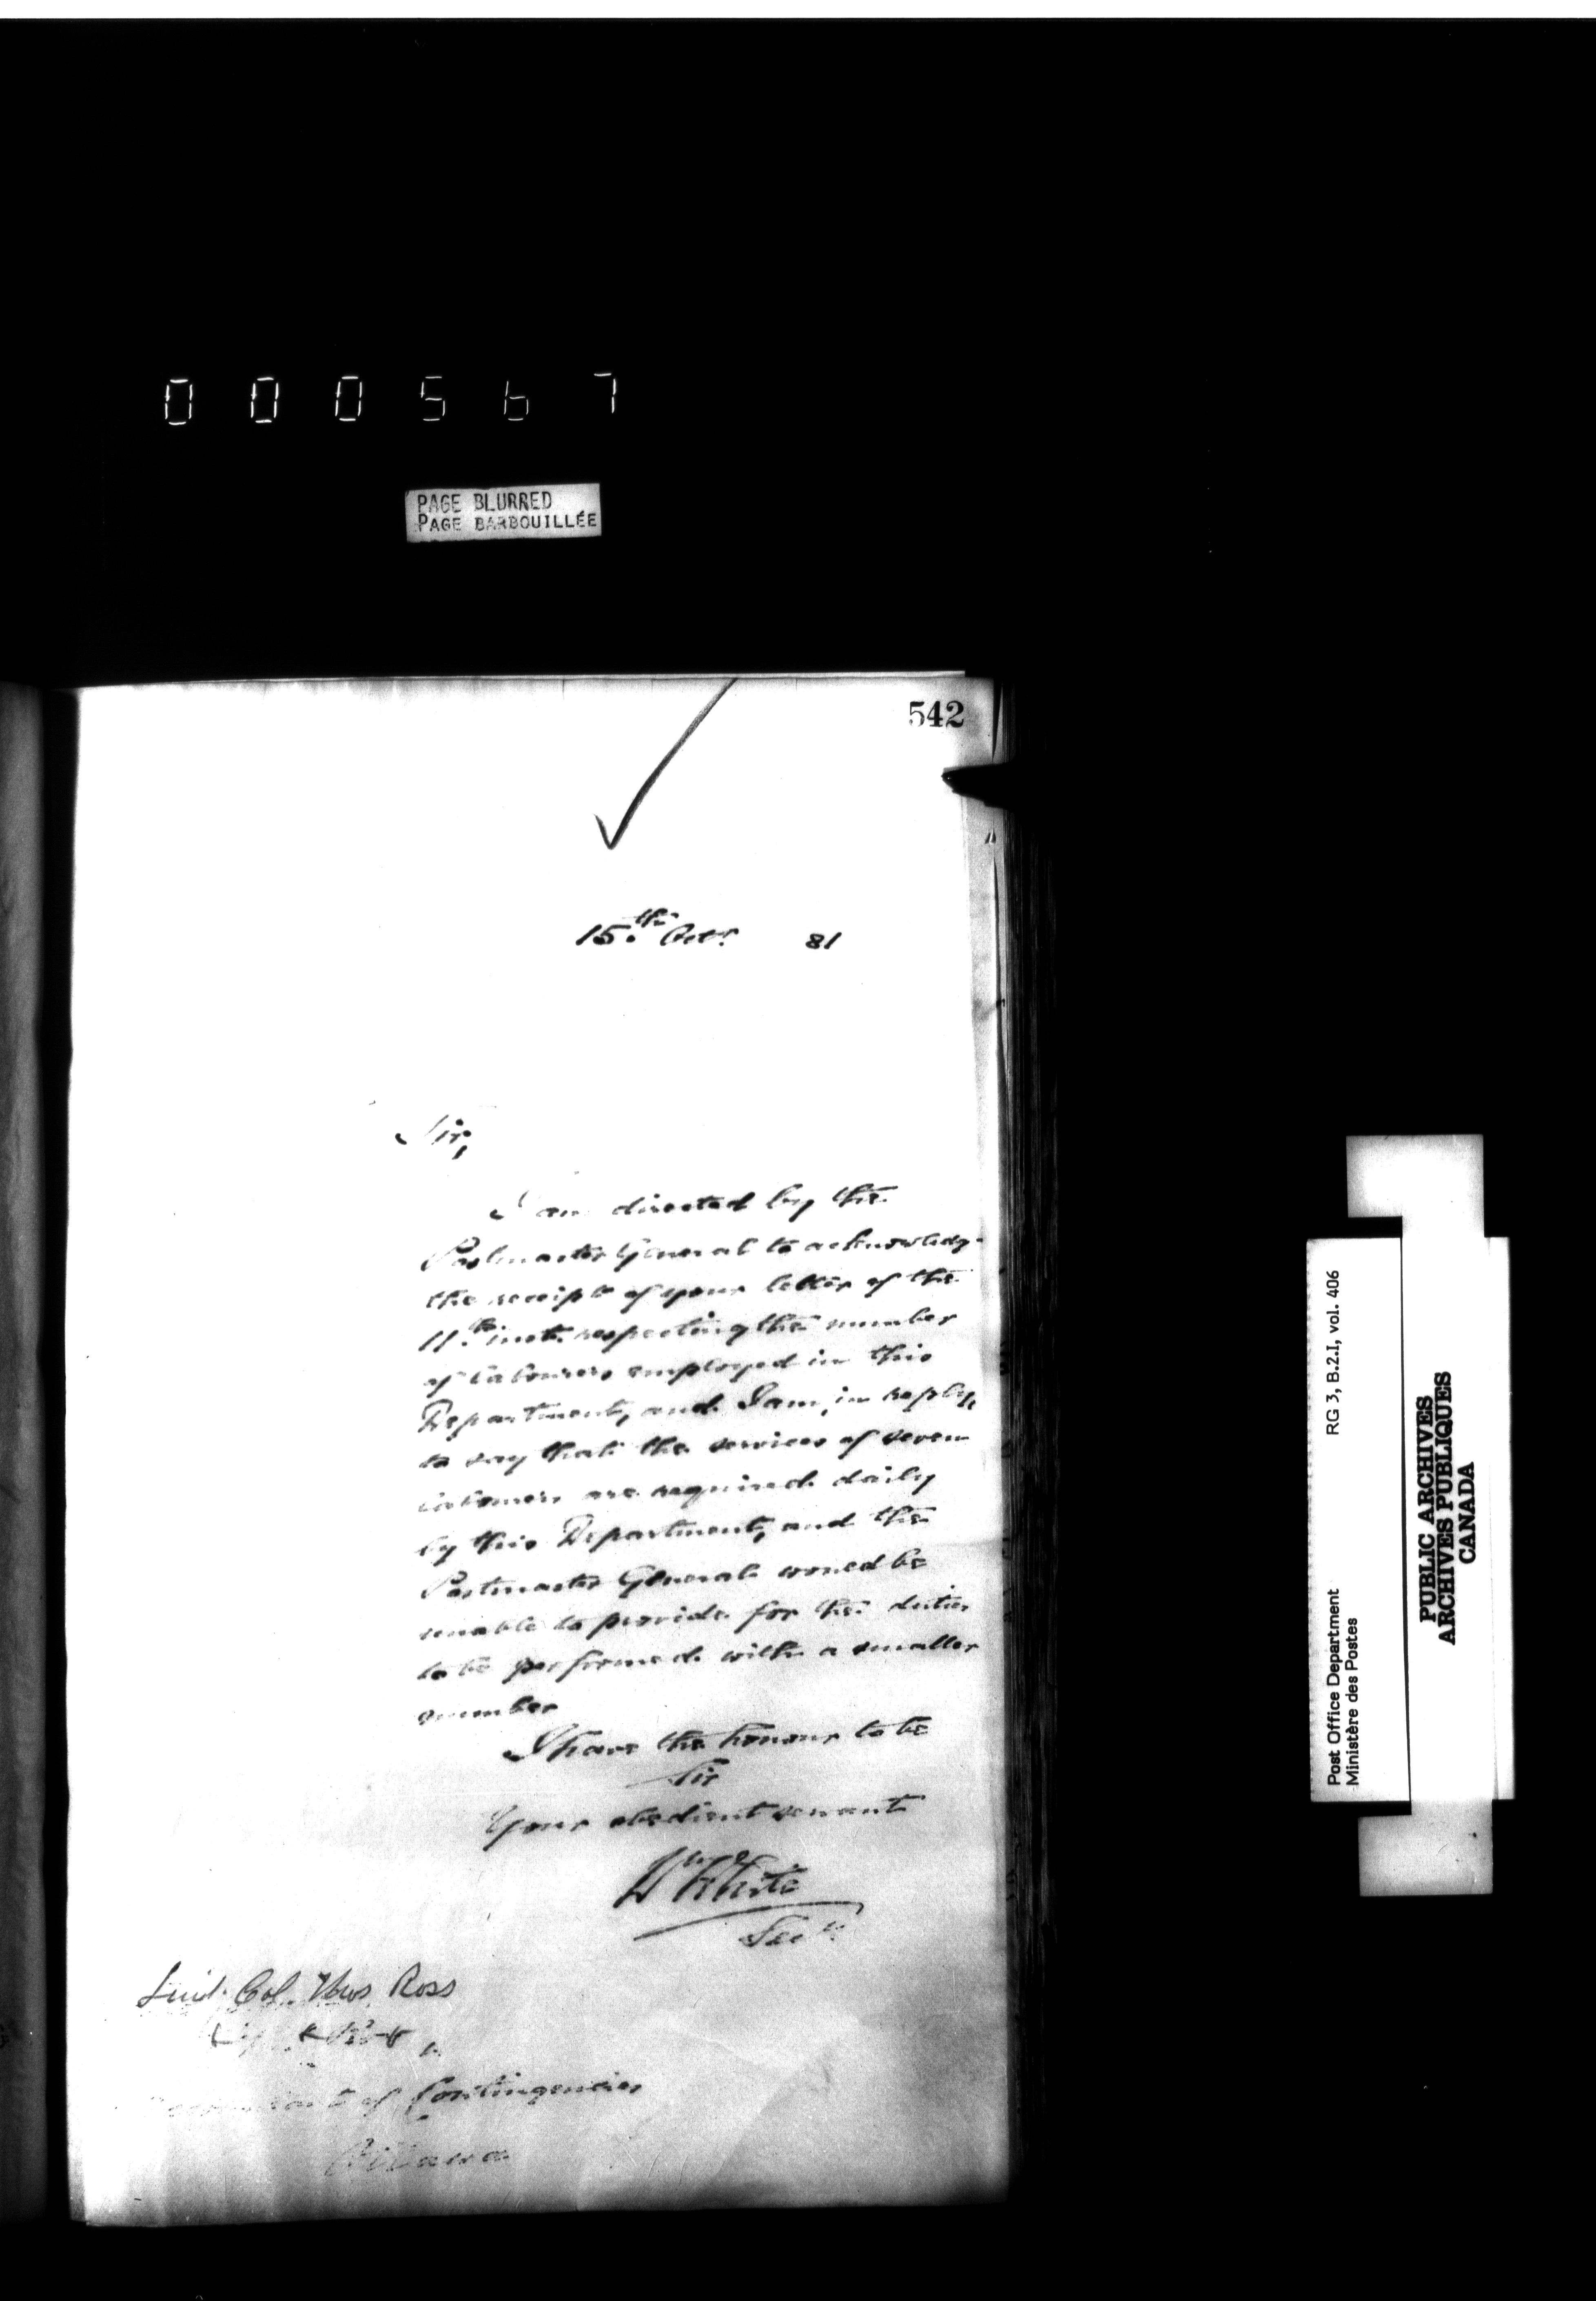 000567
PAGE BLURRED
PAGE BARBOUILLÉE
542
15.th Octr. 81
Sir,
I am directed by the
Postmaster General to acknowledge
the receipt of your letter of the
11.th inst. respecting the number
of labourers employed in this
Department, and I am, in reply,
to say that the services of seven
labourers are required daily
by this Department, and the
Postmaster General would be
unable to provide for the duties
to be performed with a smaller
number
I have the honour to be
Sir
Your obedient servant
Wm White
Secy.
Lieut. Col. Thos Ross
Accountant of Contingencies
Ottawa
Post Office Department
Ministère des Postes
RG 3, B.2.I, vol. 406
PUBLIC ARCHIVES
ARCHIVES PUBLIQUES
CANADA